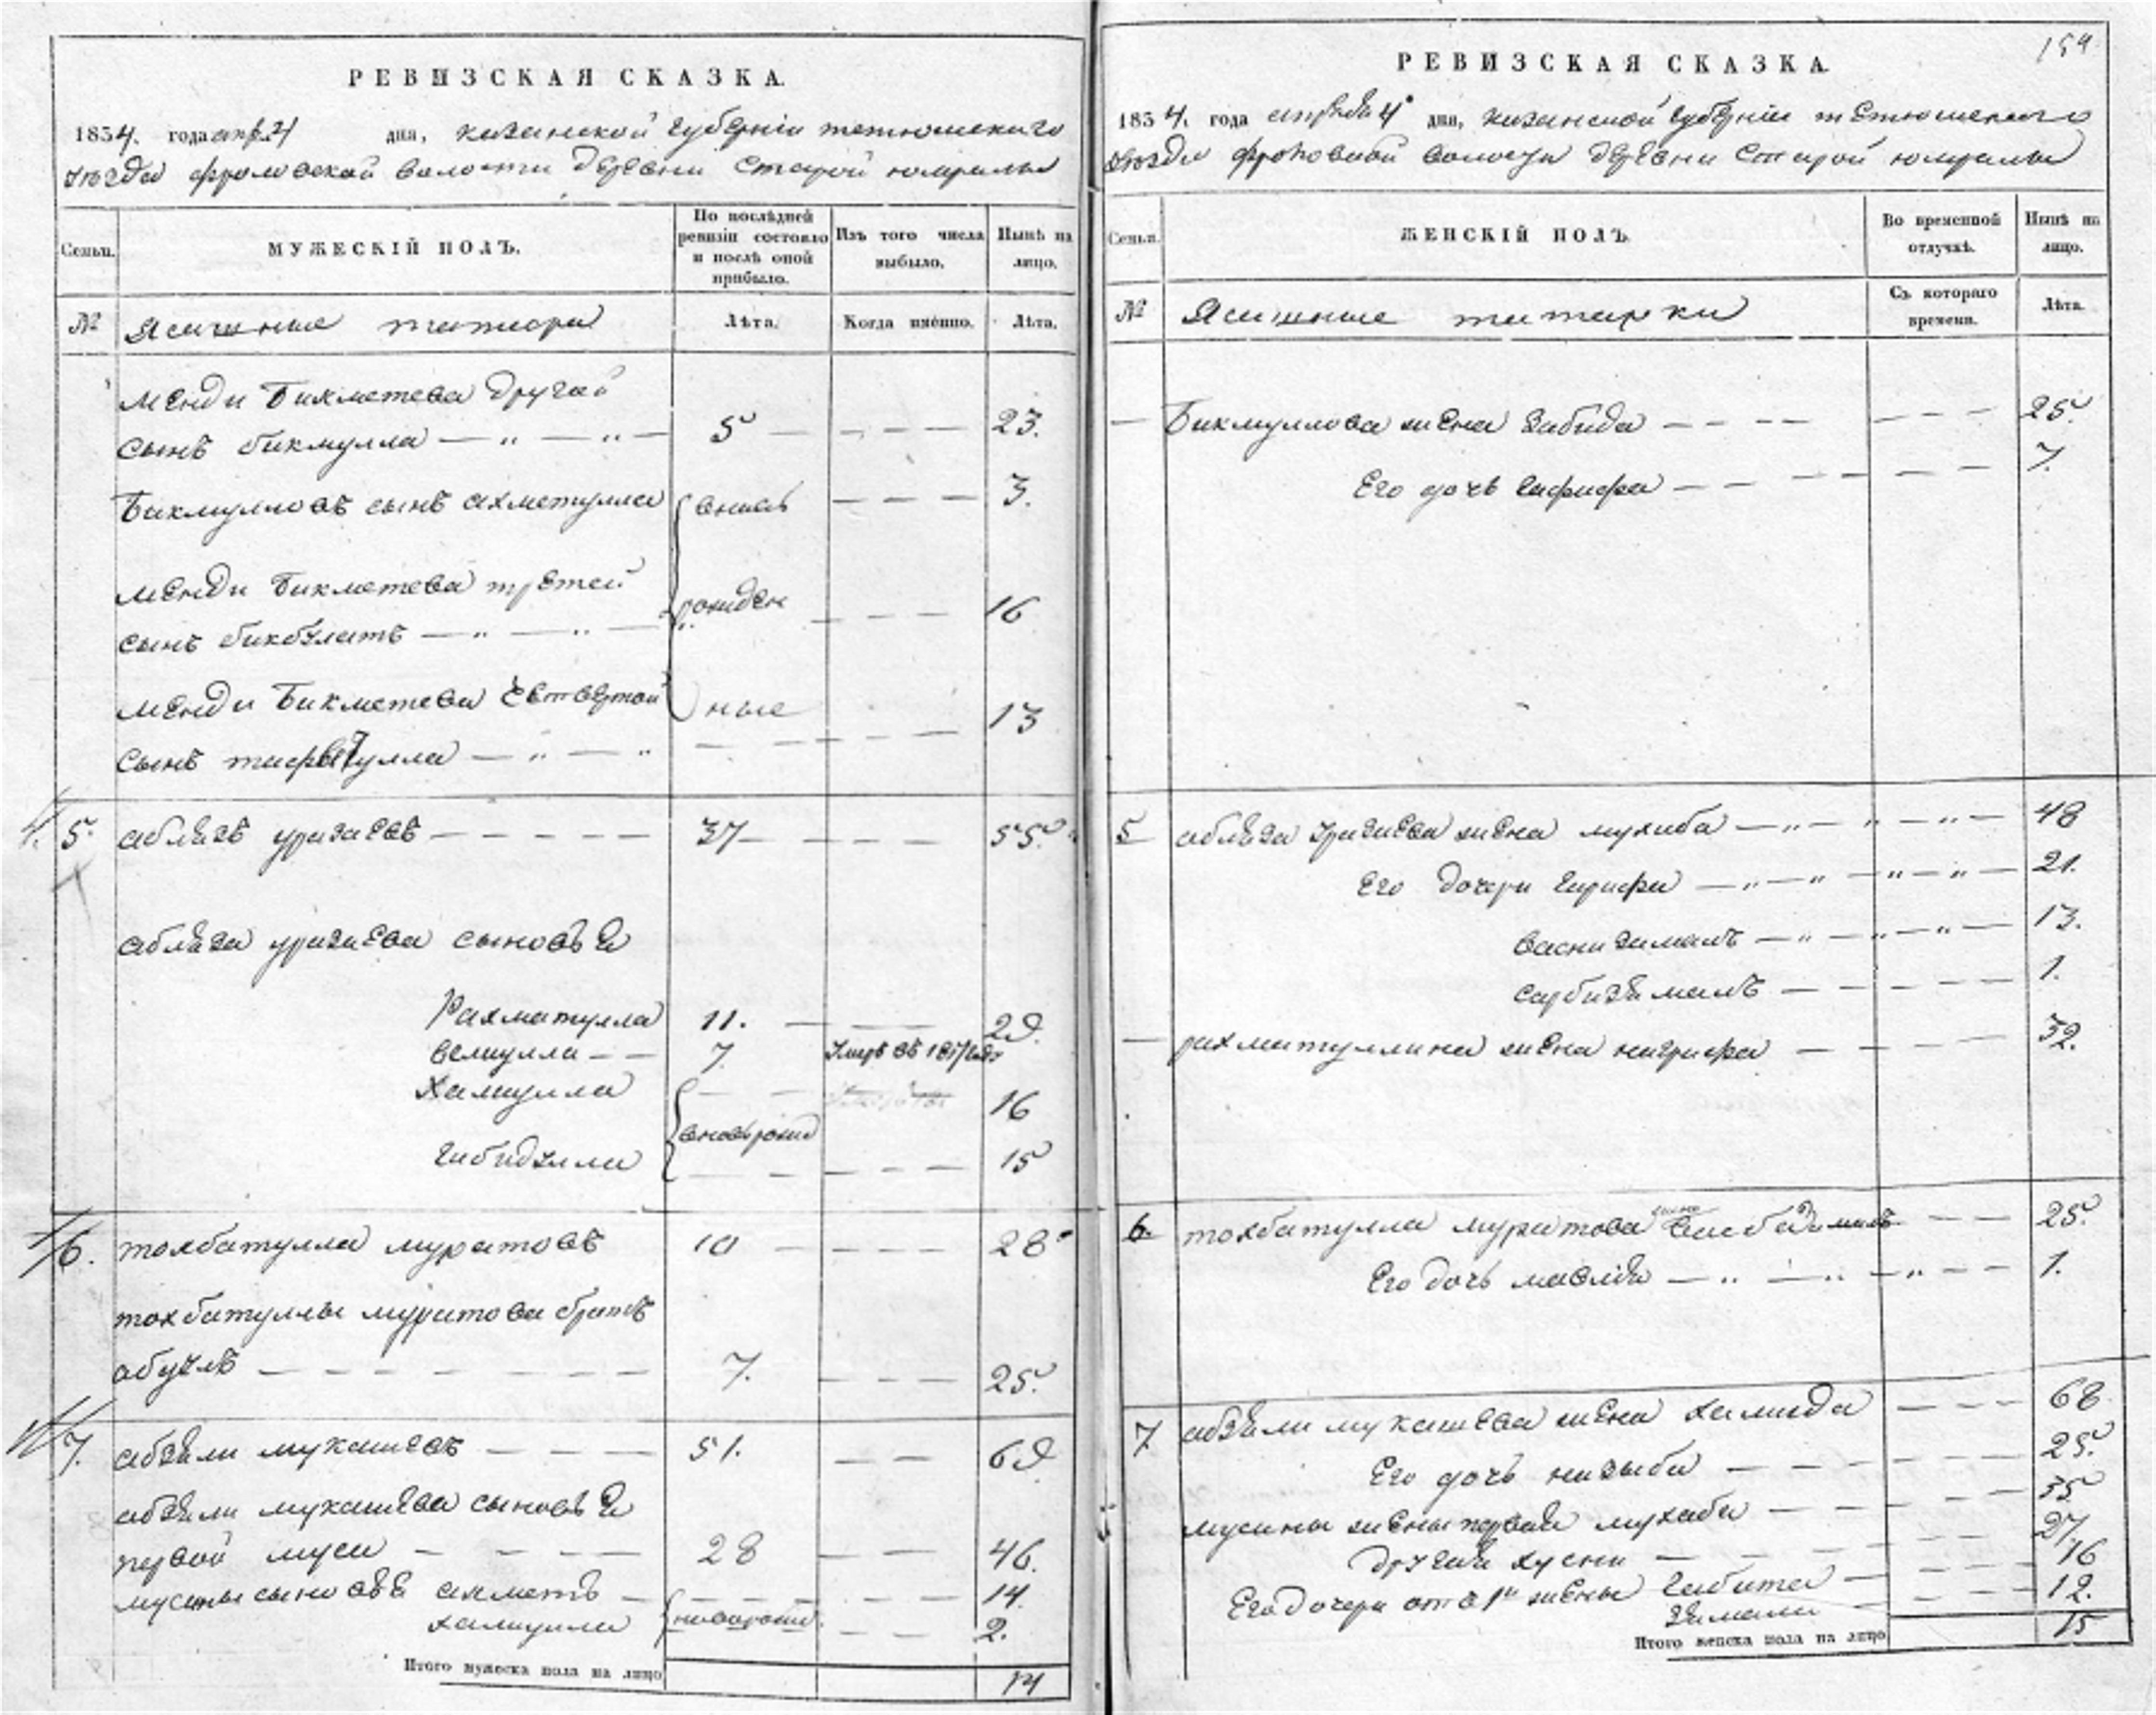 РЕВИЗСКАЯ СКАЗКА.
1834. года апр. 4 дня, казанской губерніи тетюшскаго
уѣзда фроловской волости деревни Старой юмралы
Семьи.
МУЖЕСКІЙ ПОЛЪ.
По послѣдней ревизіи состояло и послѣ оной прибыло.
Изъ того числа выбыло.
Ныне на лицо.
№
Ясашные татары
Лѣта.
Когда имѐнно.
Лѣта.
менди Бикметева другой
сынъ бикмулла — „ — „ — 5 — — — — 23.
Бикмулловъ сынъ ахметулла вновь — — — 3.
менди Бикметева третей рожден — — — 16
сынъ бикбулатъ — „ — „ —
менди Бикметева Четвертой ные 13
сынъ — „ — „ — — — — —
5. аблязъ уразаевъ — — — — — 37 — — — — 55.
абляза уразаева сыновья
Рахматулла 11. — — 29.
велиулла — — 7. Умръ въ
Хамиулла — — 16
вновь рожд
габидулла — — — — — 15
6. тохбатулла муратовъ 10 — — — — 28
тохбатуллы муратова братъ
— — — — — — 7. — — — 25.
7. абзяли мукашевъ — — — 51. — — 69
абзяли мукашева сыновья
первой муси — — — — 28 — — 46.
мусины сыновья ахметъ — — — — 14.
хамиулла — — 2.
Итого мужеска пола на лицо
14
159
РЕВИЗСКАЯ СКАЗКА.
1834. года апрѣля 4 дня, казанской губерніи тетюшскаго
уѣзда фроловской волости деревни Старой юмралы
Семьи.
ЖЕНСКІЙ ПОЛЪ.
Во временной отлучкѣ.
Нынѣ на лицо.
№
Ясашные татарки
Съ котораго времени.
Лѣта.
— Бикмуллова жена Забида — — — — — — — — 25.
Его дочь Гафифа — — — — — — — — 7.
5 абляза уразаева жена мухиба — „ — „ — „ — 48
Его дочери Гарифа — „ — „ — „ — „ — 21.
— „ — „ — „ — 13.
сарбизямалъ — — — — — — 1.
— рахматуллина жена — — — — — 32.
6. тохбатулла муратова жена — — 25.
Его дочь — „ — „ — „ — 1.
7 абзяли мукашева жена халида — — — 68
Его дочь назыба — — — — — — 25.
мусины жены первая мухаба — — — — — 35
другая хусни — — — — — 27.
Его дочери отъ 1й жены Габита — — — — 16
зямали — — 12.
Итого женска пола на лицо
15